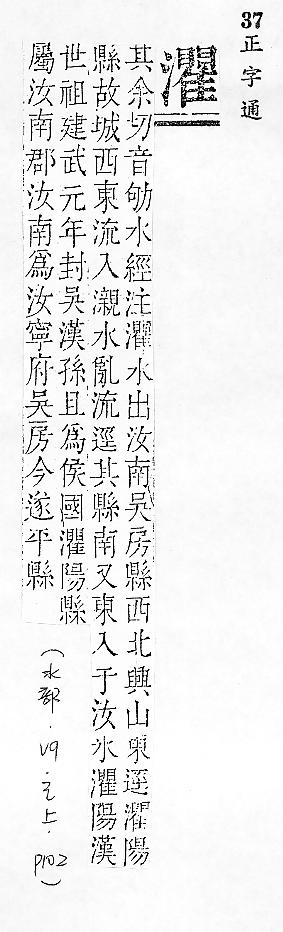 37 正字通
灈
其余切音劬水經注灈水出汝南吳房縣西北興山東逕灈陽
縣故城西東流入瀙水亂流逕其縣南又東入于汝水灈陽漢
世祖建武元年封吳漢孫且爲侯國灈陽縣
屬汝南郡汝南爲汝寧府吳房今遂平縣
(水部.V9.之上.p102)